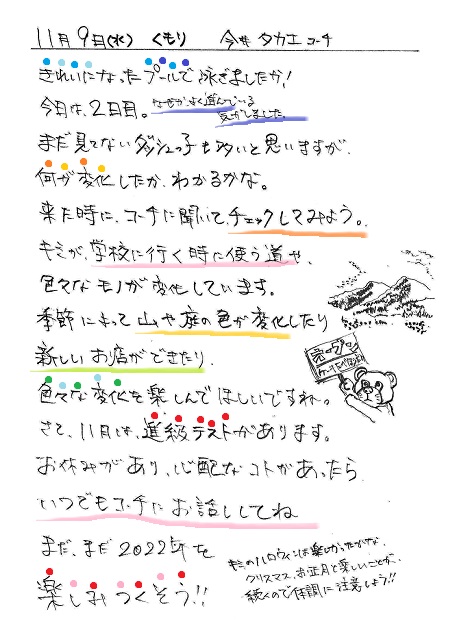 11月9日(水) くもり 今井タカエコーチ
きれいになったプールで泳ぎましたか!
今日は、2日目。なぜかよく進んでいる
気がしました。
まだ見てないダッシュっ子も多いと思いますが、
何が変化したか、わかるかな。
来た時に、コーチに聞いて、チェックしてみよう。
キミが、学校に行く時に使う道や、
色々なモノが変化しています。
季節によって山や庭の色が変化したり
新しいお店ができたり、
オープン
色々な変化を楽しんでほしいですね。
さて、11月は、進級テストがあります。
お休みがあり、心配なコトがあったら
いつでもコーチにお話ししてね
まだ、まだ2022年を
楽しみつくそう!!
キミのハロウィンは楽しかったかな、
クリスマス、お正月と楽しいことが、
続くので体調に注意しよう!!